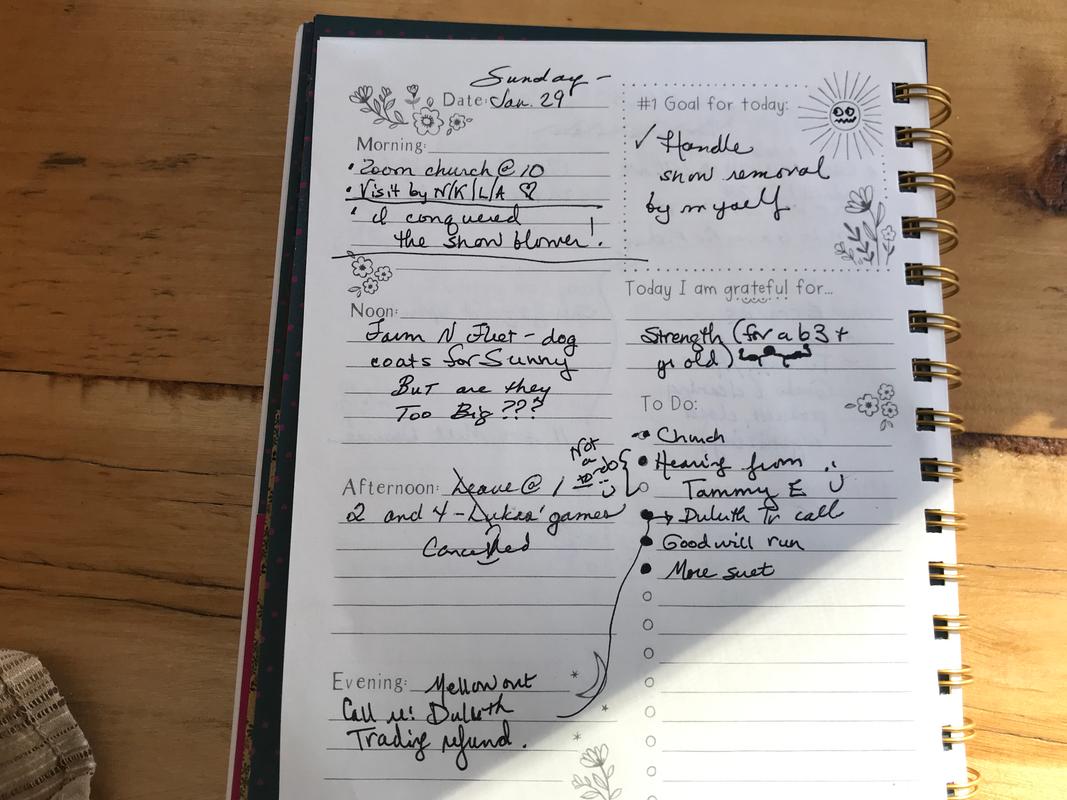 Sunday -
Date: Jan. 29
Morning:
• Zoom church @ 10
• Visit by N/K/L/A ♡
• I conquered
the snow blower!
Noon:
Farm N Fleet - dog
coats for Sunny
But are they
Too Big ???
Afternoon: Leave @ 1
2 and 4 - Lukas' games
Cancelled
Evening: Mellow out
Call re: Duluth
Trading refund.
#1 Goal for today:
✓ Handle
snow removal
by myself
Today I am grateful for...
Strength (for a 63 +
yr old)
To Do:
Church
Not
a
to-do
Hearing from
Tammy E
→ Duluth Tr call
Goodwill run
More suet